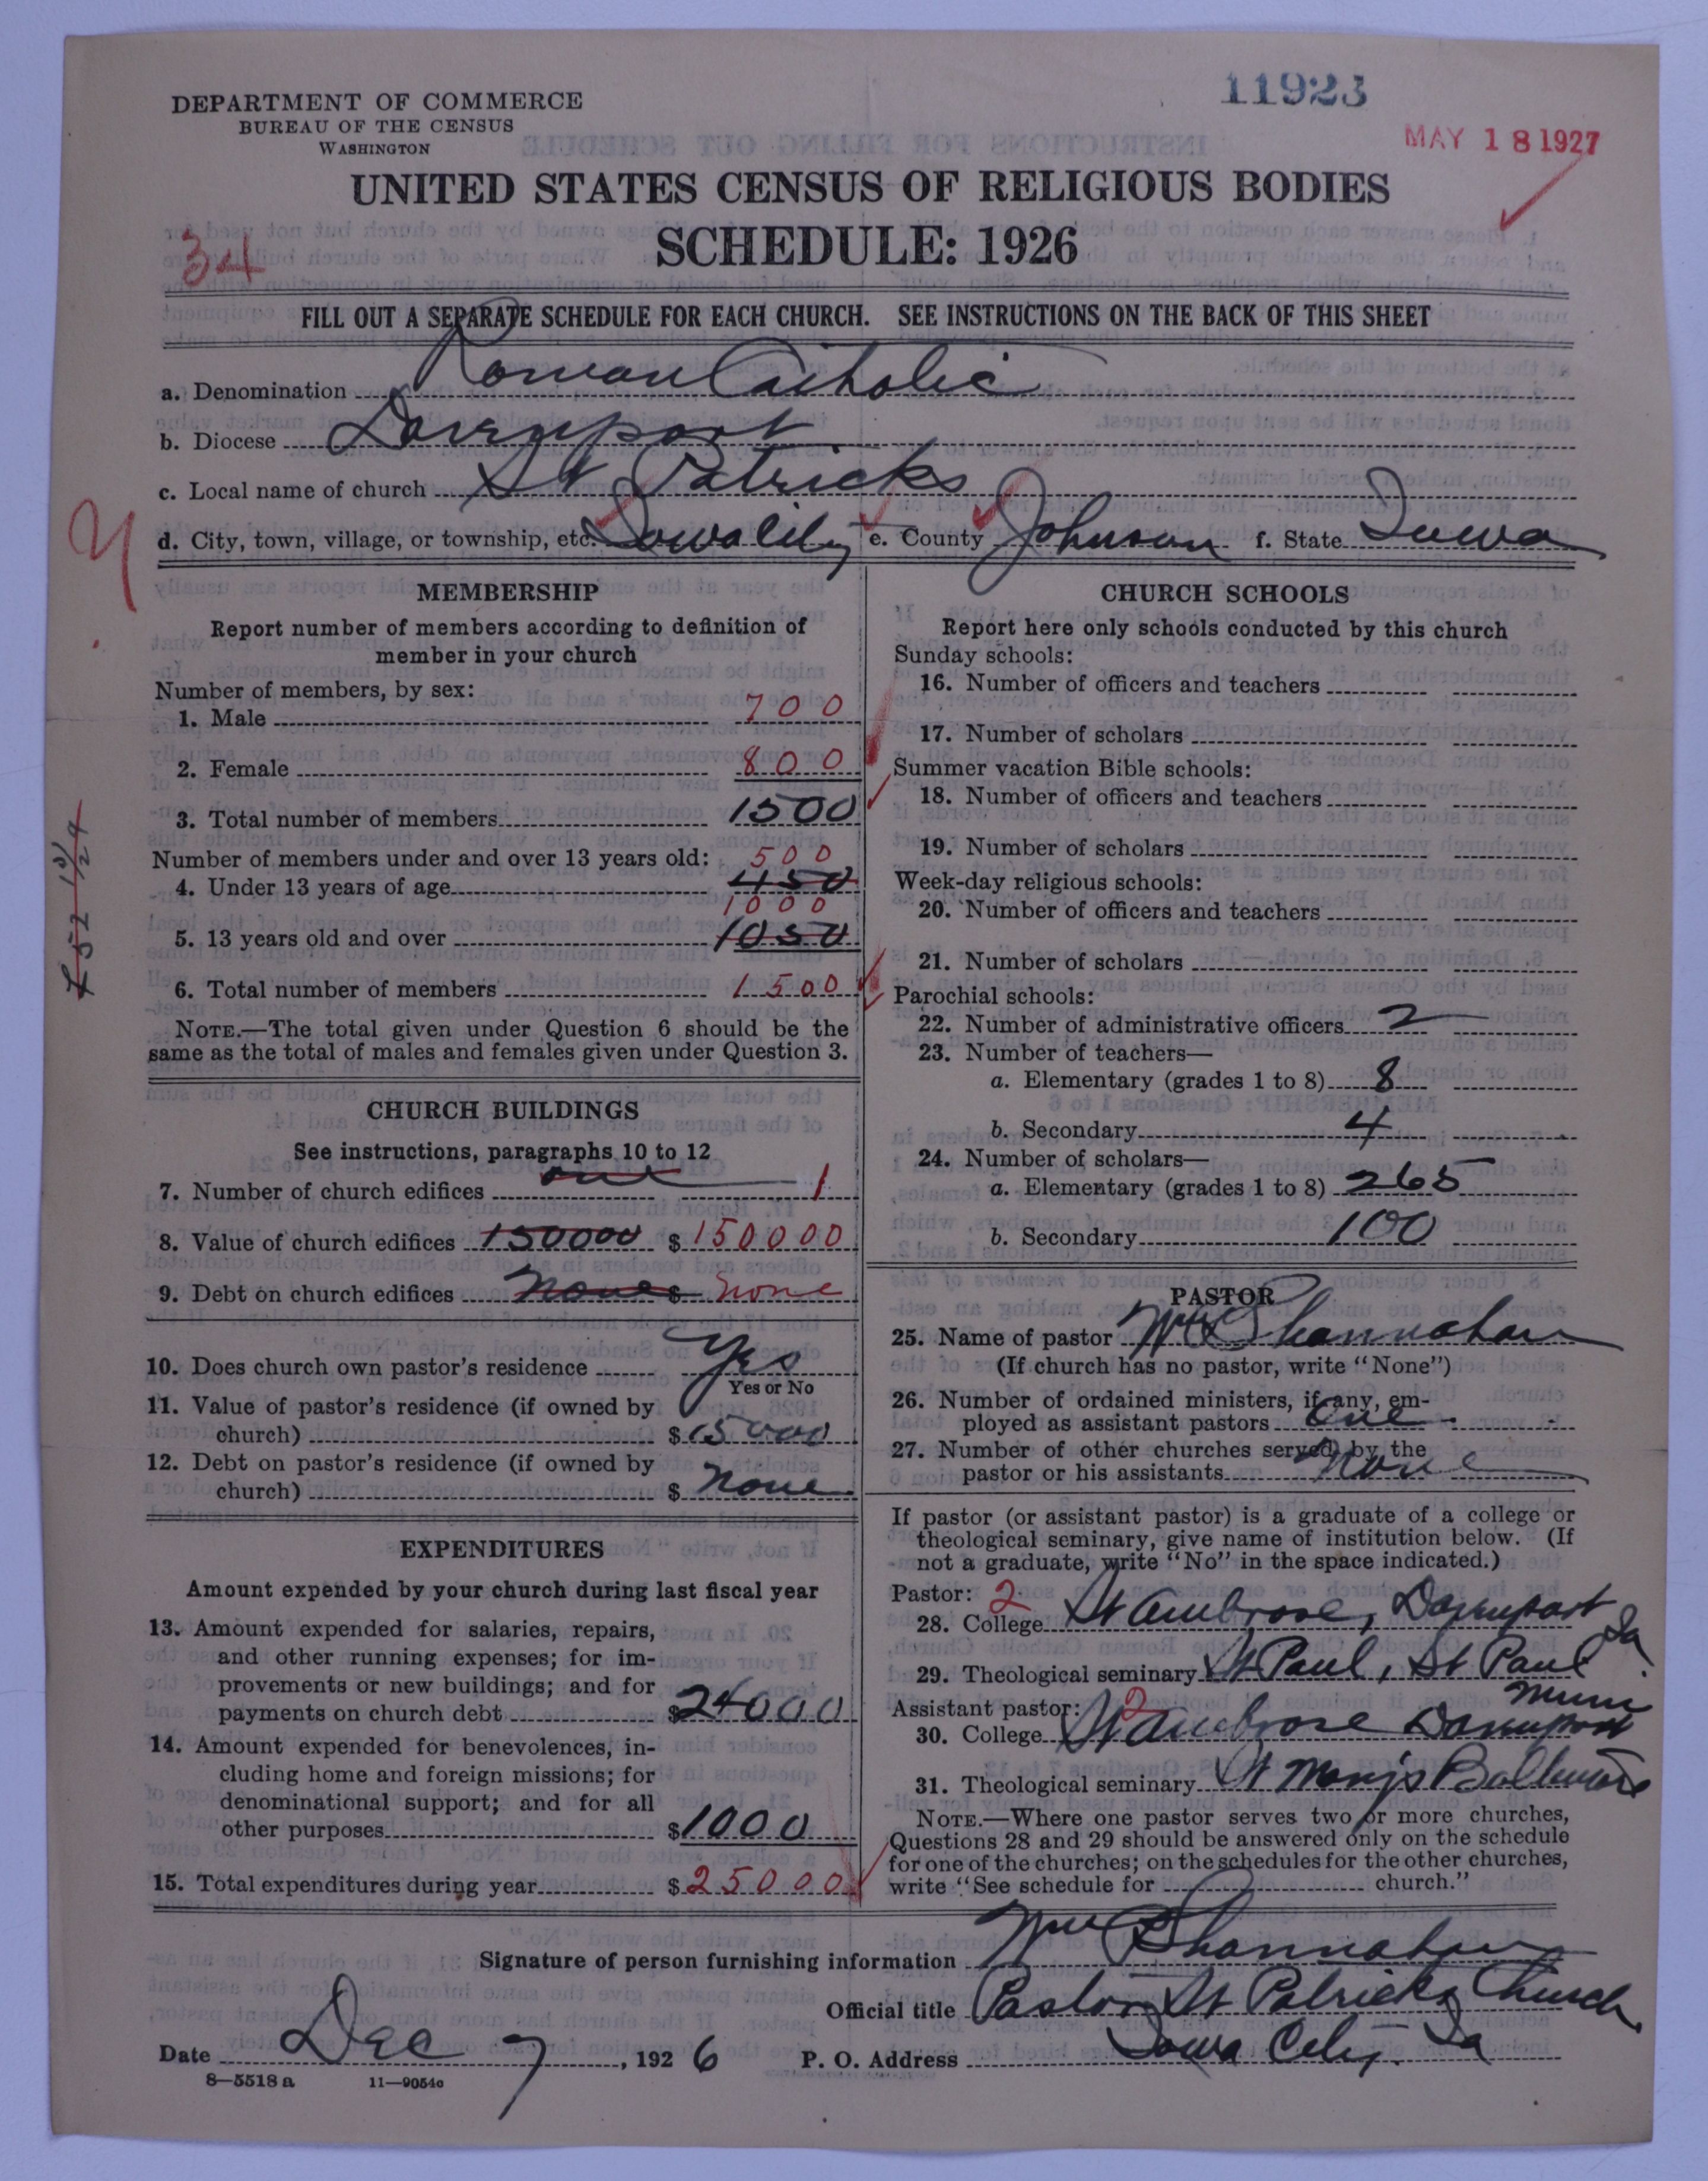 11923
DEPARTMENT OF COMMERCE
BUREAU OF THE CENSUS
WASHINGTON
MAY 18 1927
UNITED STATES CENSUS OF RELIGIOUS BODIES
SCHEDULE: 1926
34
FILL OUT A SEPARATE SCHEDULE FOR EACH CHURCH. SEE INSTRUCTIONS ON THE BACK OF THIS SHEET
a. Denomination Roman Catholic
b. Diocese Davenport
c. Local name of church St Patricks
d. City, town, village, or township, etc. Iowa City e. County Johnson f. State Iowa
MEMBERSHIP
Report number of members according to definition of
member in your church
Number of members, by sex:
1. Male 700
2. Female 800
3. Total number of members 1500
Number of members under and over 13 years old:
500
4. Under 13 years of age 450
1000
5. 13 years old and over 1050
6. Total number of members 1500
NOTE.—The total given under Question 6 should be the
same as the total of males and females given under Question 3.
CHURCH BUILDINGS
See instructions, paragraphs 10 to 12
7. Number of church edifices one 1
8. Value of church edifices 150000 $ 150000
9. Debt on church edifices none $ none
10. Does church own pastor's residence Yes
Yes or No
11. Value of pastor's residence (if owned by
church) $ 15000
12. Debt on pastor's residence (if owned by
church) $ none
EXPENDITURES
Amount expended by your church during last fiscal year
13. Amount expended for salaries, repairs,
and other running expenses; for im-
provements or new buildings; and for
payments on church debt $ 24000
14. Amount expended for benevolences, in-
cluding home and foreign missions; for
denominational support; and for all
other purposes $ 1000
15. Total expenditures during year $ 25000
CHURCH SCHOOLS
Report here only schools conducted by this church
Sunday schools:
16. Number of officers and teachers
17. Number of scholars
Summer vacation Bible schools:
18. Number of officers and teachers
19. Number of scholars
Week-day religious schools:
20. Number of officers and teachers
21. Number of scholars
Parochial schools:
22. Number of administrative officers 2
23. Number of teachers—
a. Elementary (grades 1 to 8) 8
b. Secondary 4
24. Number of scholars—
a. Elementary (grades 1 to 8) 265
b. Secondary 100
PASTOR
25. Name of pastor Wm P Shannahan
(If church has no pastor, write "None")
26. Number of ordained ministers, if any, em-
ployed as assistant pastors One
27. Number of other churches served by the
pastor or his assistants None
If pastor (or assistant pastor) is a graduate of a college or
theological seminary, give name of institution below. (If
not a graduate, write "No" in the space indicated.)
Pastor: 2
28. College St Ambrose, Davenport Ia
29. Theological seminary St Paul, St Paul Minn
Assistant pastor: 2
30. College St Ambrose Davenport
31. Theological seminary St Marys Baltimore
NOTE.—Where one pastor serves two or more churches,
Questions 28 and 29 should be answered only on the schedule
for one of the churches; on the schedules for the other churches,
write "See schedule for church."
Signature of person furnishing information Wm P Shannahan
Official title Pastor St Patricks Church
Date Dec 7, 1926 P. O. Address Iowa City Ia
8—5518 a 11—9054a